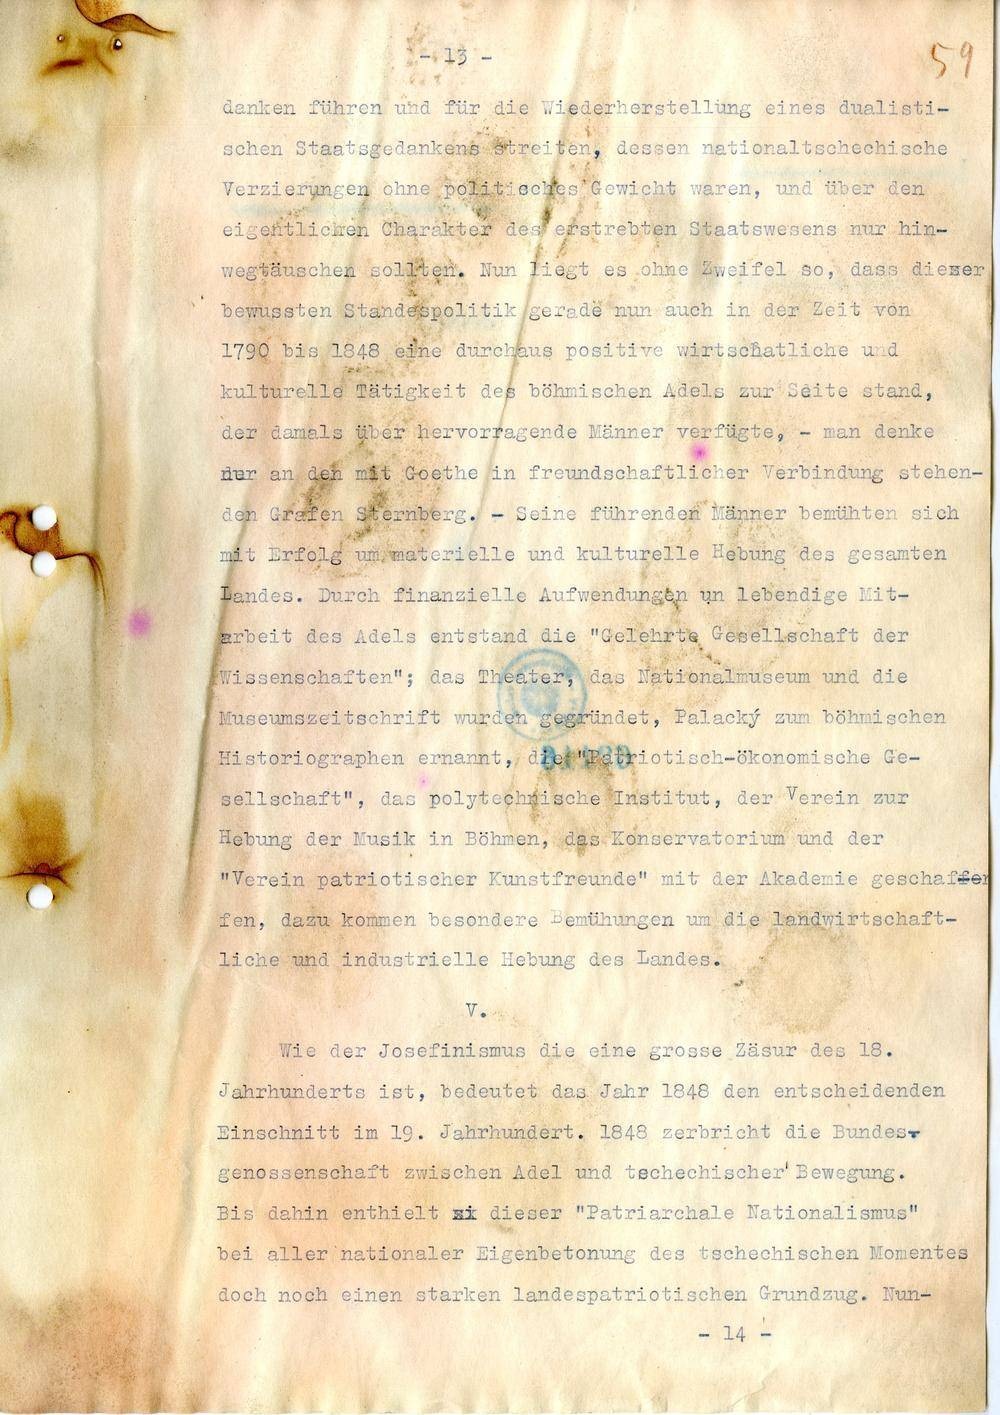 - 13 -
59
danken führen und für die Wiederherstellung eines dualisti-
schen Staatsgedankens streiten, dessen nationaltschechische
Verzierungen ohne politisches Gewicht waren, und über den
eigentlichen Charakter des erstrebten Staatswesens nur hin-
wegtäuschen sollten. Nun liegt es ohne Zweifel so, dass dieser
bewussten Standespolitik gerade nun auch in der Zeit von
1790 bis 1848 eine durchaus positive wirtschatliche und
kulturelle Tätigkeit des böhmischen Adels zur Seite stand,
der damals über hervorragende Männer verfügte, - man denke
nur an den mit Goethe in freundschaftlicher Verbindung stehen-
den Grafen Sternberg. - Seine führenden Männer bemühten sich
mit Erfolg um materielle und kulturelle Hebung des gesamten
Landes. Durch finanzielle Aufwendungen un lebendige Mit-
arbeit des Adels entstand die "Gelehrte Gesellschaft der
Wissenschaften"; das Theater, das Nationalmuseum und die
Museumszeitschrift wurden gegründet, Palacký zum böhmischen
Historiographen ernannt, die "Patriotisch-ökonomische Ge-
sellschaft", das polytechnische Institut, der Verein zur
Hebung der Musik in Böhmen, das Konservatorium und der
"Verein patriotischer Kunstfreunde" mit der Akademie geschaf
fen, dazu kommen besondere Bemühungen um die landwirtschaft-
liche und industrielle Hebung des Landes.
V.
Wie der Josefinismus die eine grosse Zäsur des 18.
Jahrhunderts ist, bedeutet das Jahr 1848 den entscheidenden
Einschnitt im 19. Jahrhundert. 1848 zerbricht die Bundes-
genossenschaft zwischen Adel und tschechischer Bewegung.
Bis dahin enthielt dieser "Patriarchale Nationalismus"
bei aller nationaler Eigenbetonung des tschechischen Momentes
doch noch einen starken landespatriotischen Grundzug. Nun-
- 14 -